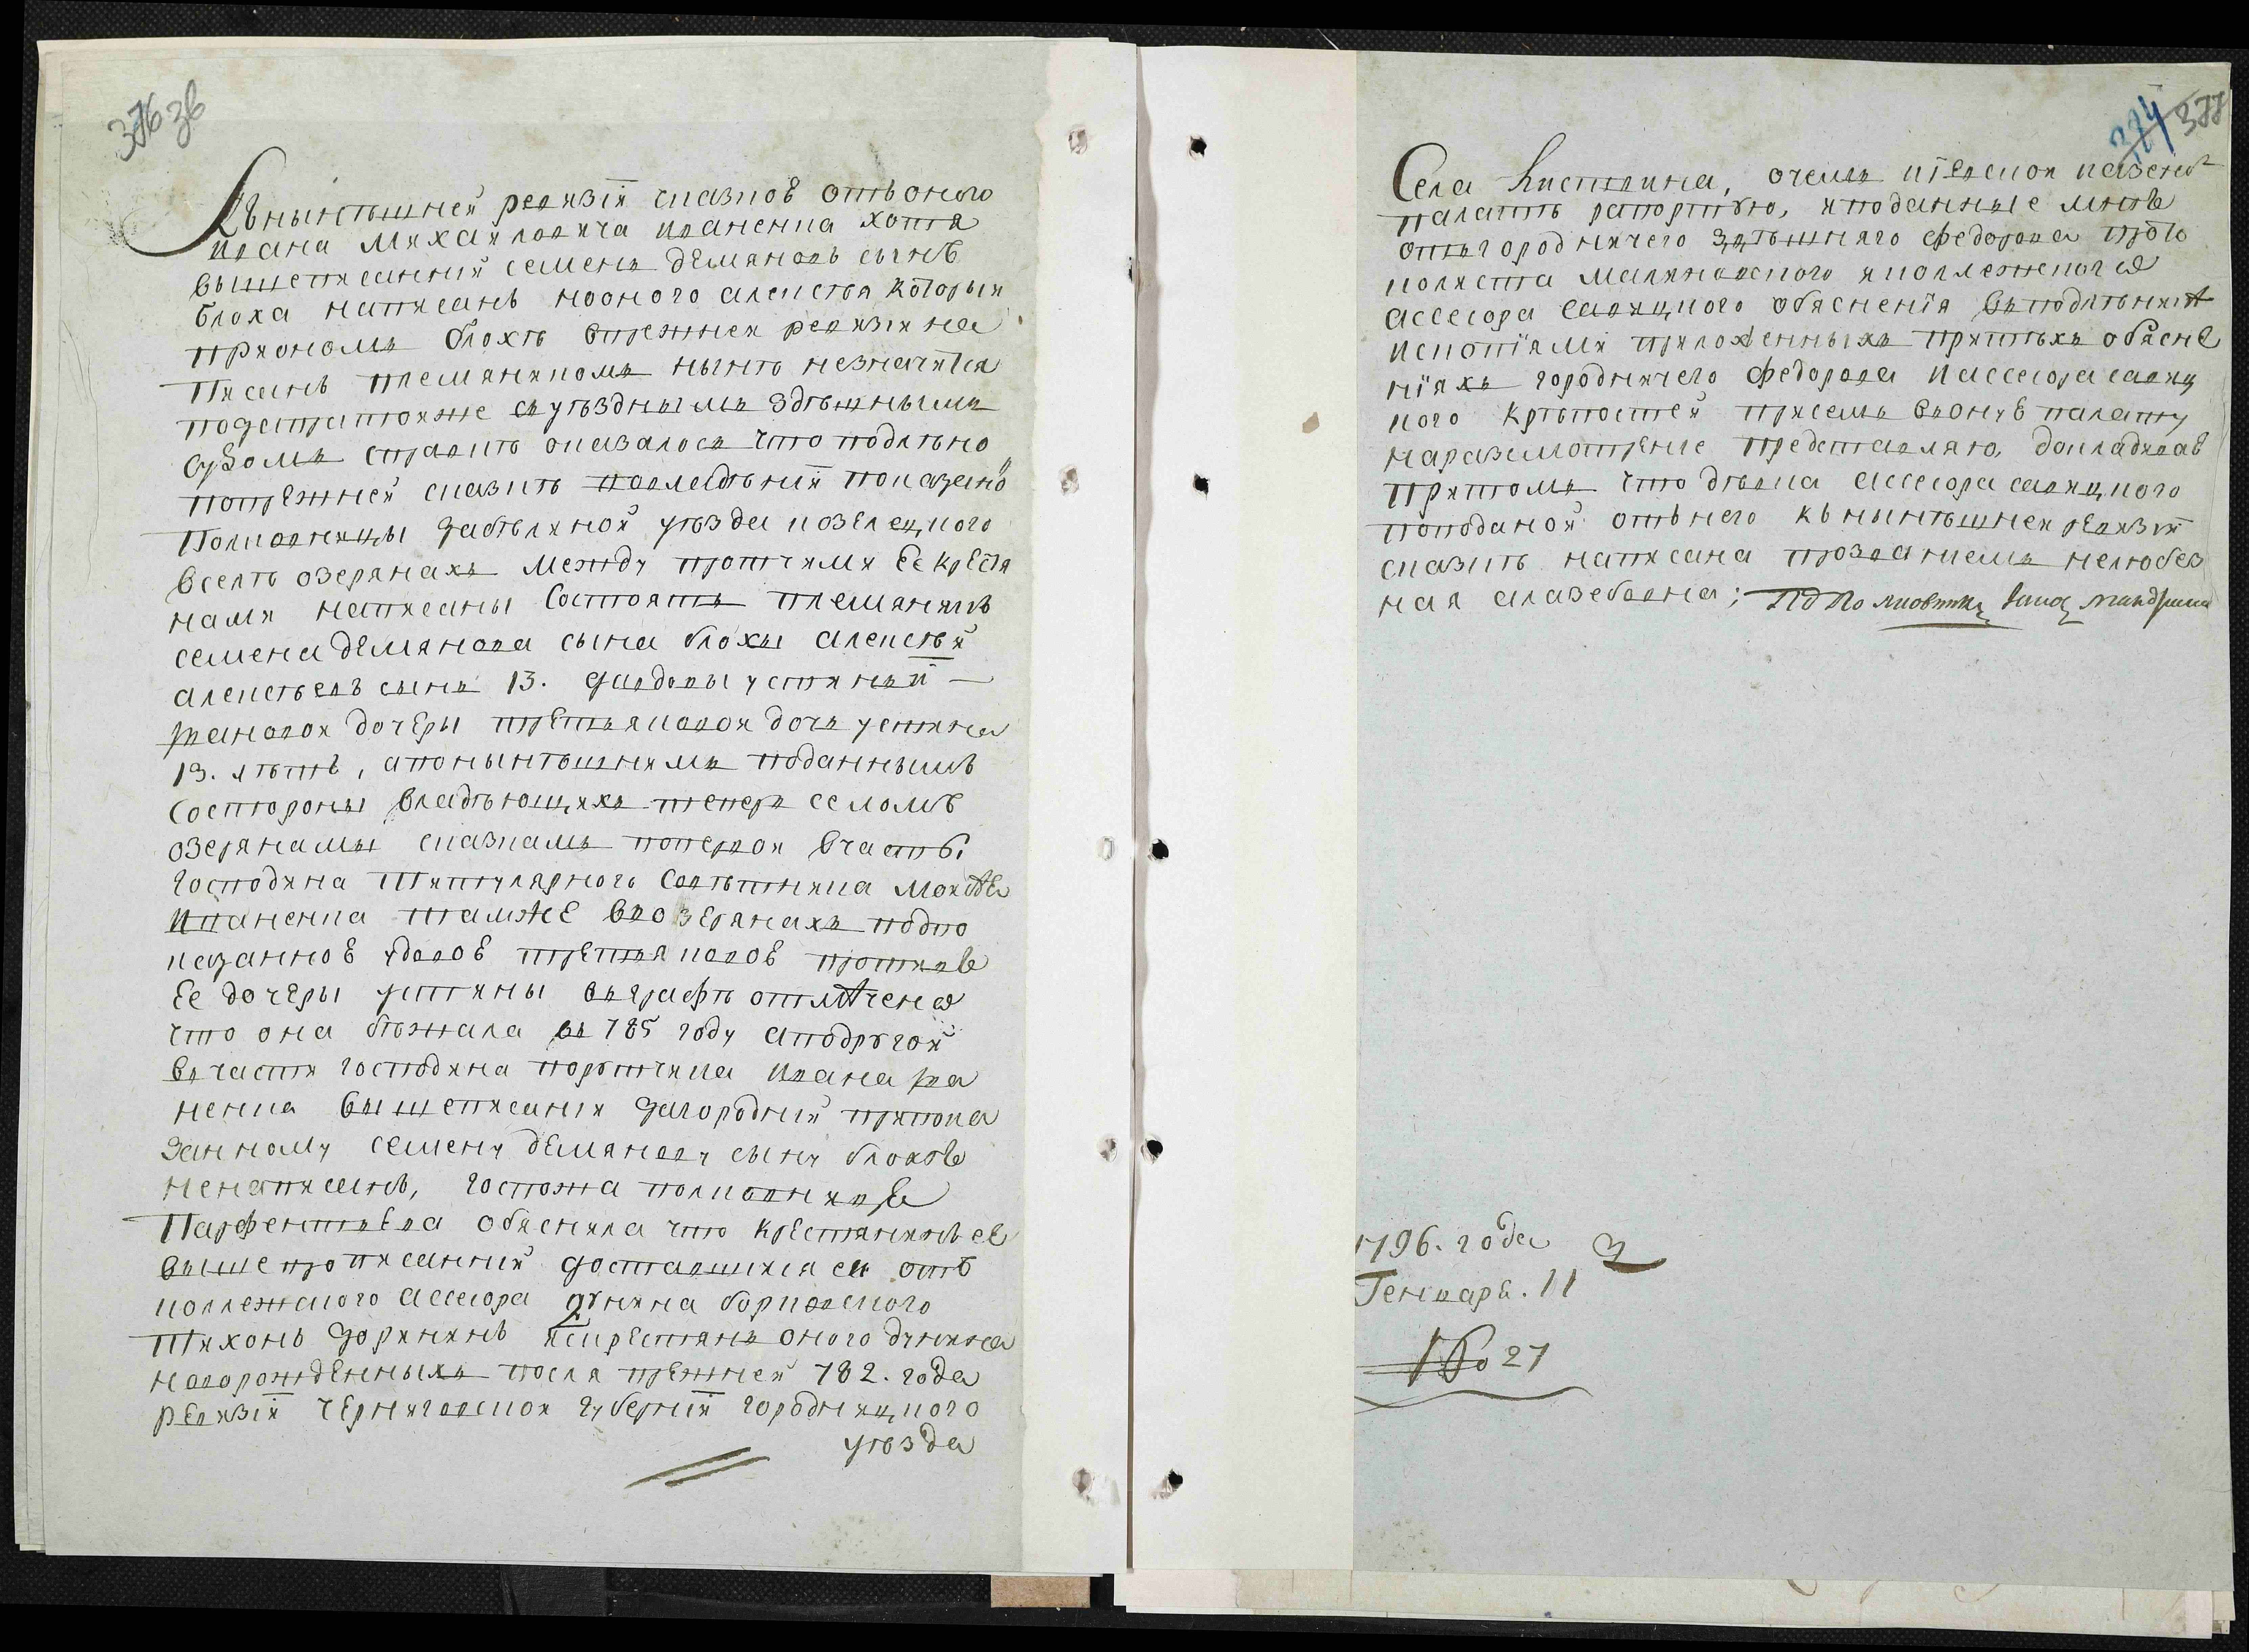 376 зв
Къ нынѣшней ревизіи сказкѣ отъ оного
Ивана Михайловича Иваненка хотя
вышеписанній Семенъ Демяновъ сынъ
Блоха написанъ но оного Алексѣя который
при ономъ Блохѣ в прежней ревизии на
писанъ племянникомъ нынѣ незначится
по децртитоияже съ уѣзднымъ здѣшнымъ
судомъ справкѣ оказалось что подлѣно
по прежней сказкѣ показано
полковницы уезда козелецкого
в селѣ Озерянахъ между протчими Ее крестя
нами написаны состоятъ племянникъ
Семена Демянова сына Блохы Алексѣй
Алексѣевъ сынъ 13. у вдовы
ивановой дочеры третьяковой дочь устина
13. лѣтъ, а по нынѣшнимъ поданнымъ
со стороны владѣющихъ теперь селомъ
Озерянамы сказкамъ по первой в части
господина Титулярного Совѣтника Моисея
Иваненка тамже въ Озерянахъ под по
казанноѣ вдовоѣ третьяковоѣ противъ
Ее дочеры устины въ графѣ отмѣчена
что она бѣжала въ 785 году а по другой
въ части господина порутчика Ивана Ива
ненка вышеписаній загородній при пока
занному Семену Демянову сыну Блохѣ
ненаписанъ, госпожа полковникова
Парфентьева обяснила что крестянинъ ее
вышепрописанній доставшихся ей отъ
коллежского ассесора Дунина Борковского
Тихонъ исъ крестянъ оного Дунина
новорожденныхъ после прежней 782. года
ревизіи Черниговской губерніи городницкого
уѣзда
374 377
Села Листвина, о чемъ кіевской казеной
палатѣ рапортую, и поданные мнѣ
отъ городничего здѣшняго Федорова прото
колиста Малиновского и коллежского
ассесора Савицкого обясненія въ подлѣннике
и с копіями приложенныхъ при тѣхъ обясне
ніяхъ городничего Федорова и ассесора Савиц
кого крѣпостей при семъ въ онуѣ палату
на разсмотреніе представляю, докладиваѣ
при томъ что дѣвка ассесора Савицкого
по поданой отъ него къ нынѣшней ревизіи
сказкѣ написана прозваніемъ нелюбез
ная а лазебовна;
1796. года
Генваря. 11
№ 27